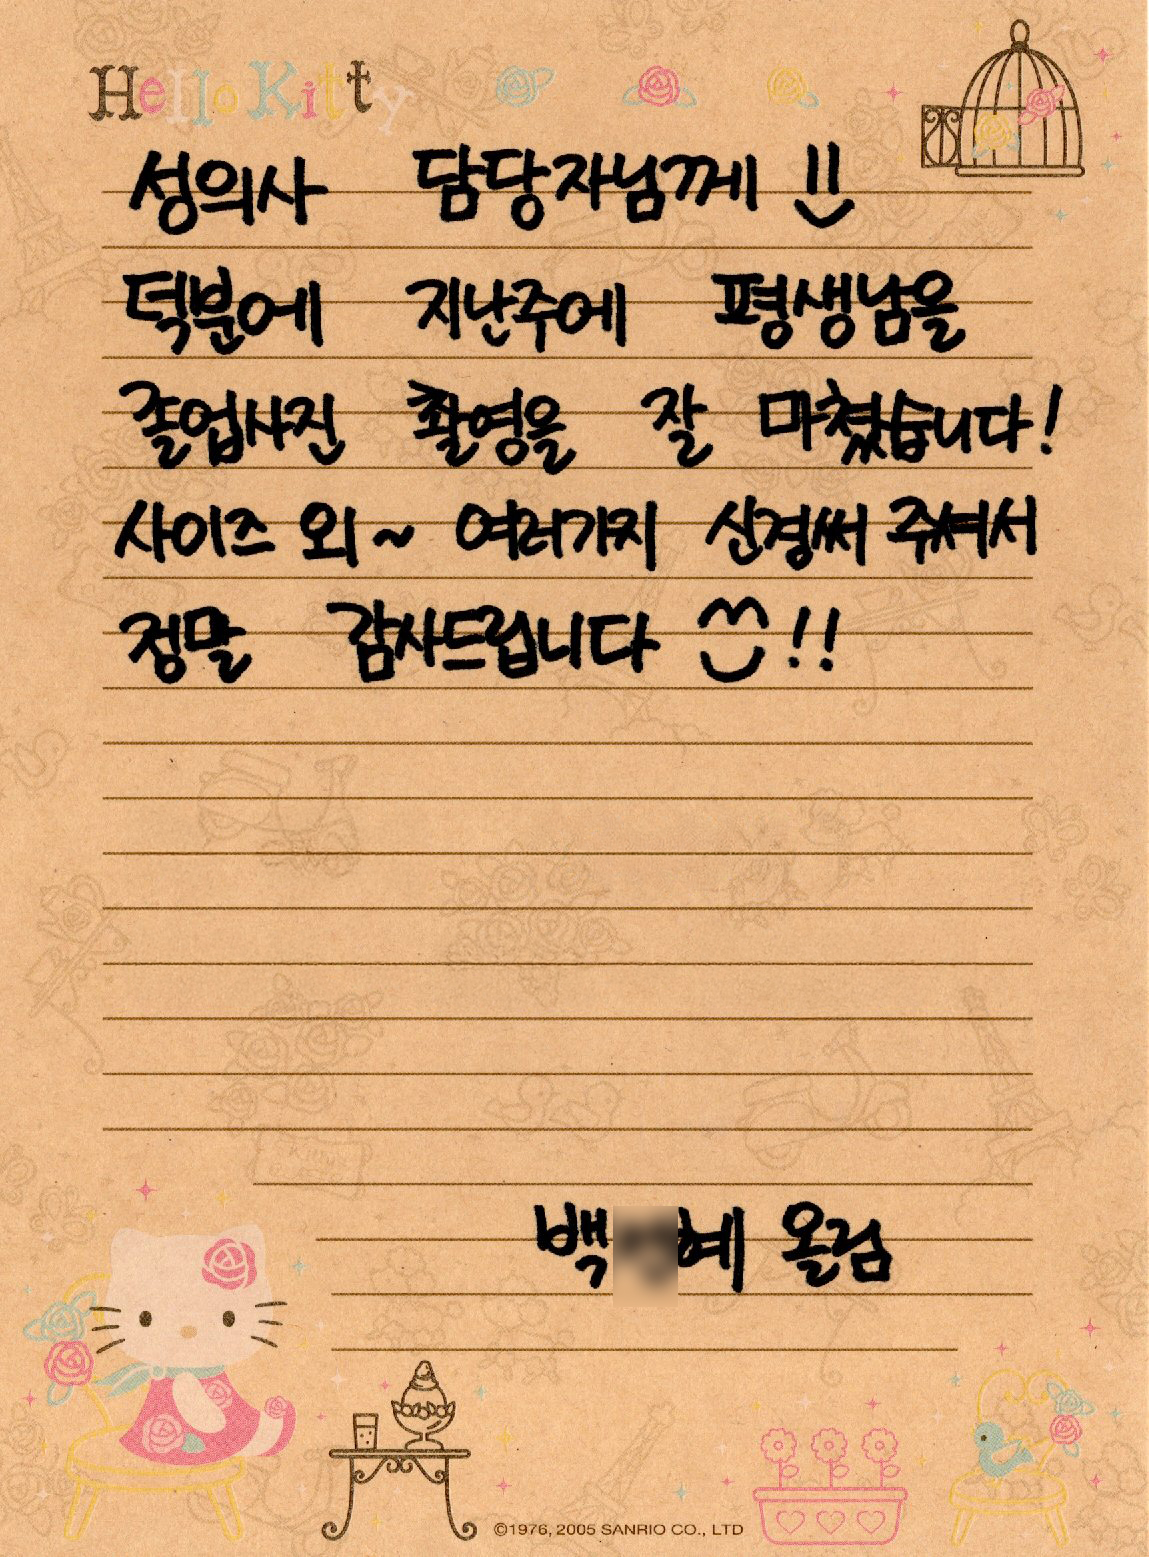 Hello Kitty
성의사 담당자님께 !!
덕분에 지난주에 평생남을
졸업사진 촬영을 잘 마쳤습니다!
사이즈 외~ 여러가지 신경써 주셔서
정말 감사드립니다 !!
백 혜 올림
©1976, 2005 SANRIO CO., LTD